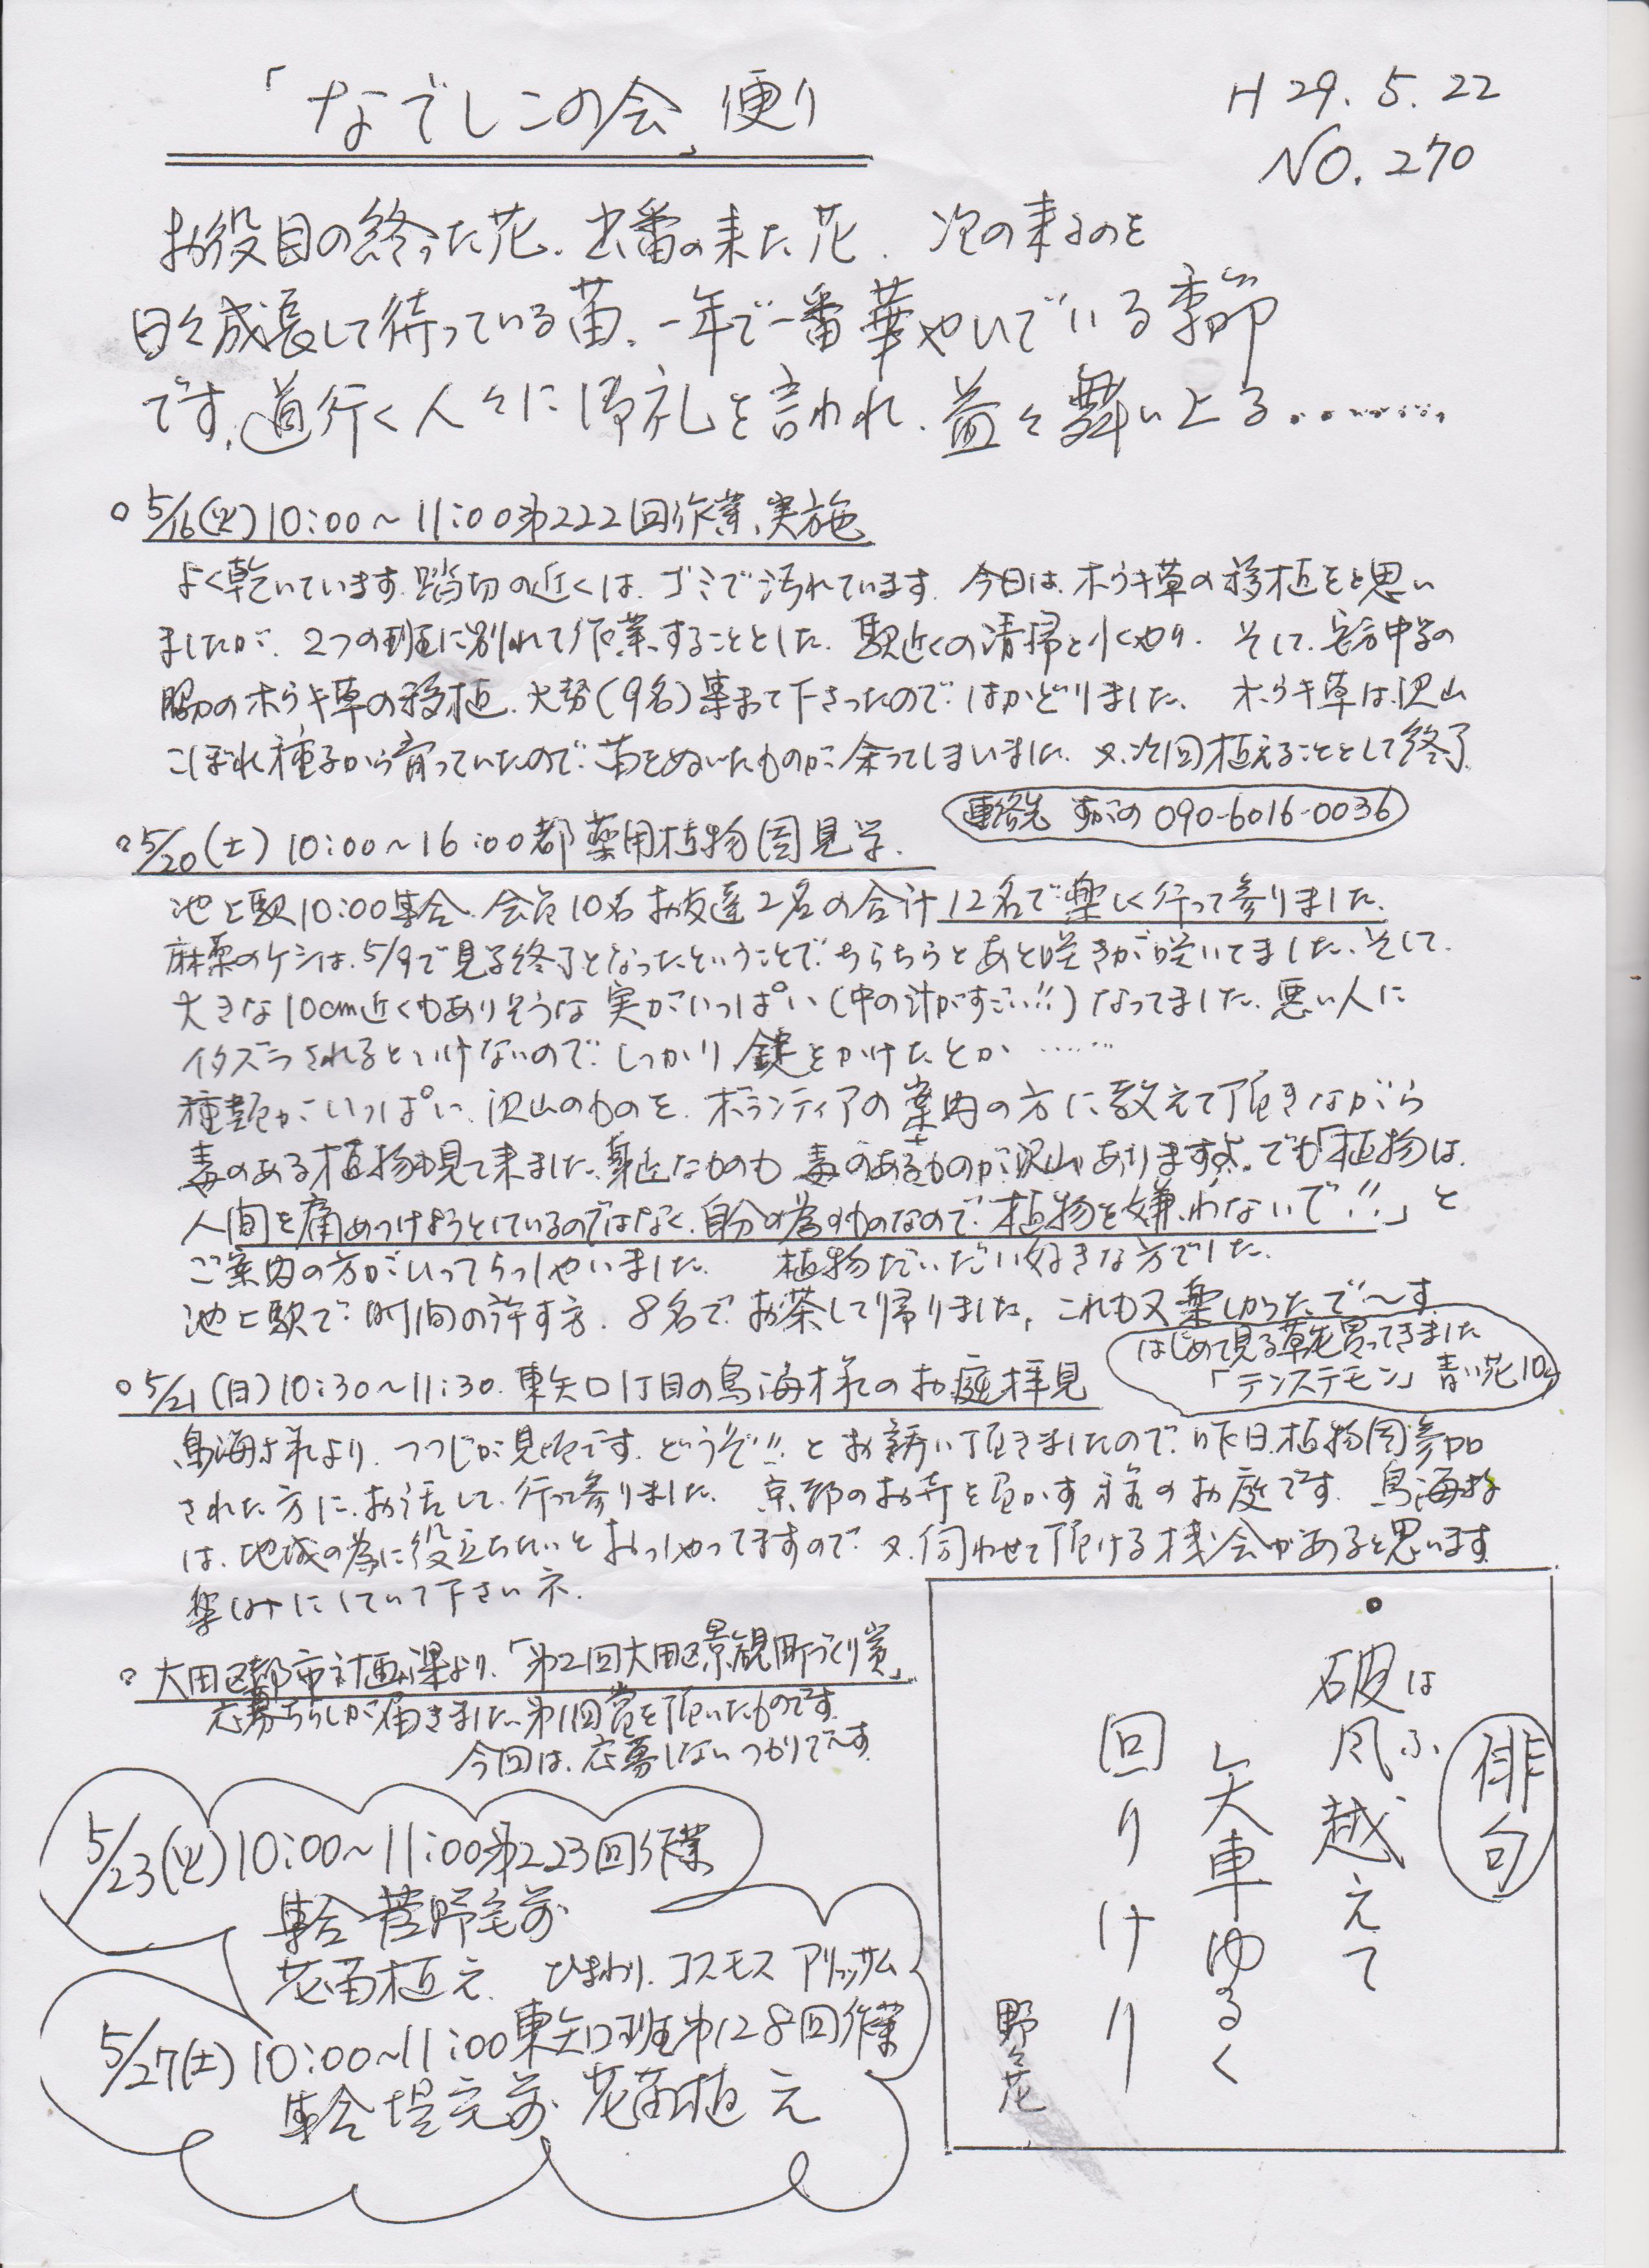 「なでしこの会」便り
H29.5.22
NO.270
お役目の終った花、出番の来た花、次の来るのを
日々成長して待っている苗、一年で一番華やいでいる季節
です。道行く人々に御礼を言われ、益々舞い上る………
○5/16(火)10:00～11:00第222回作業、実施
よく乾いています。踏切の近くは、ゴミで汚れています。今日は、ホウキ草の移植をと思い
ましたが、2つの班に別れて作業することとした。駅近くの清掃と水やり、そして、安方中学の
脇のホウキ草の移植、大勢(9名)集まって下さったので、はかどりました。ホウキ草は、沢山
こぼれ種子から育っていたので、苗をぬいたものが余ってしまいました。又、次回植えることとして終了
連絡先 すがの 090-6016-0036
○5/20(土)10:00～16:00都薬用植物園見学
池上駅10:00集合、会員10名お友達2名の合計12名で楽しく行って参りました。
麻薬のケシは、5/9で見学終了となったということで、ちらちらとあと咲きが咲いてました。そして、
大きな10cm近くもありそうな実がいっぱい(中の汁がすごい!!)なってました。悪い人に
イタズラされるといけないので、しっかり鍵をかけたとか……
種類がいっぱい、沢山のものを、ボランティアの案内の方に教えて頂きながら
毒のある植物も見て来ました。身近なものも毒のあるものが沢山ありますよ。でも「植物は、
人間を痛めつけようとしているのではなく、自分の為のものなので、植物を嫌わないで!!」と
ご案内の方がいってらっしゃいました。植物だいだい好きな方でした。
池上駅で、時間の許す方、8名で、お茶して帰りました。これも又楽しかったで～す。
はじめて見る草花買ってきました
「テンステモン」青い花10ヶ
○5/21(日)10:30～11:30、東矢口1丁目の鳥海様のお庭拝見
鳥海様より、つつじが見頃です。どうぞ!!とお誘い頂きましたので、昨日、植物園参加
された方に、お話して、行って参りました。京都のお寺を思わす様のお庭です。鳥海様
は、地域の為に役立ちたいとおっしゃってますので、又、伺わせて頂ける機会があると思います。
楽しみにしていて下さいネ。
○大田区都市計画課より、「第2回大田区景観町づくり賞」
応募ちらしが届きました。第1回賞を頂いたものです。
今回は、応募しないつもりでーす。
5/23(火)10:00～11:00第223回作業
集合菅野宅前
花苗植え、ひまわり、コスモス アリッサム
5/27(土)10:00～11:00東矢口班第128回作業
集合堤方前 花苗植え
俳句
破風越えて
はふ
矢車ゆるく
回りけり
野花